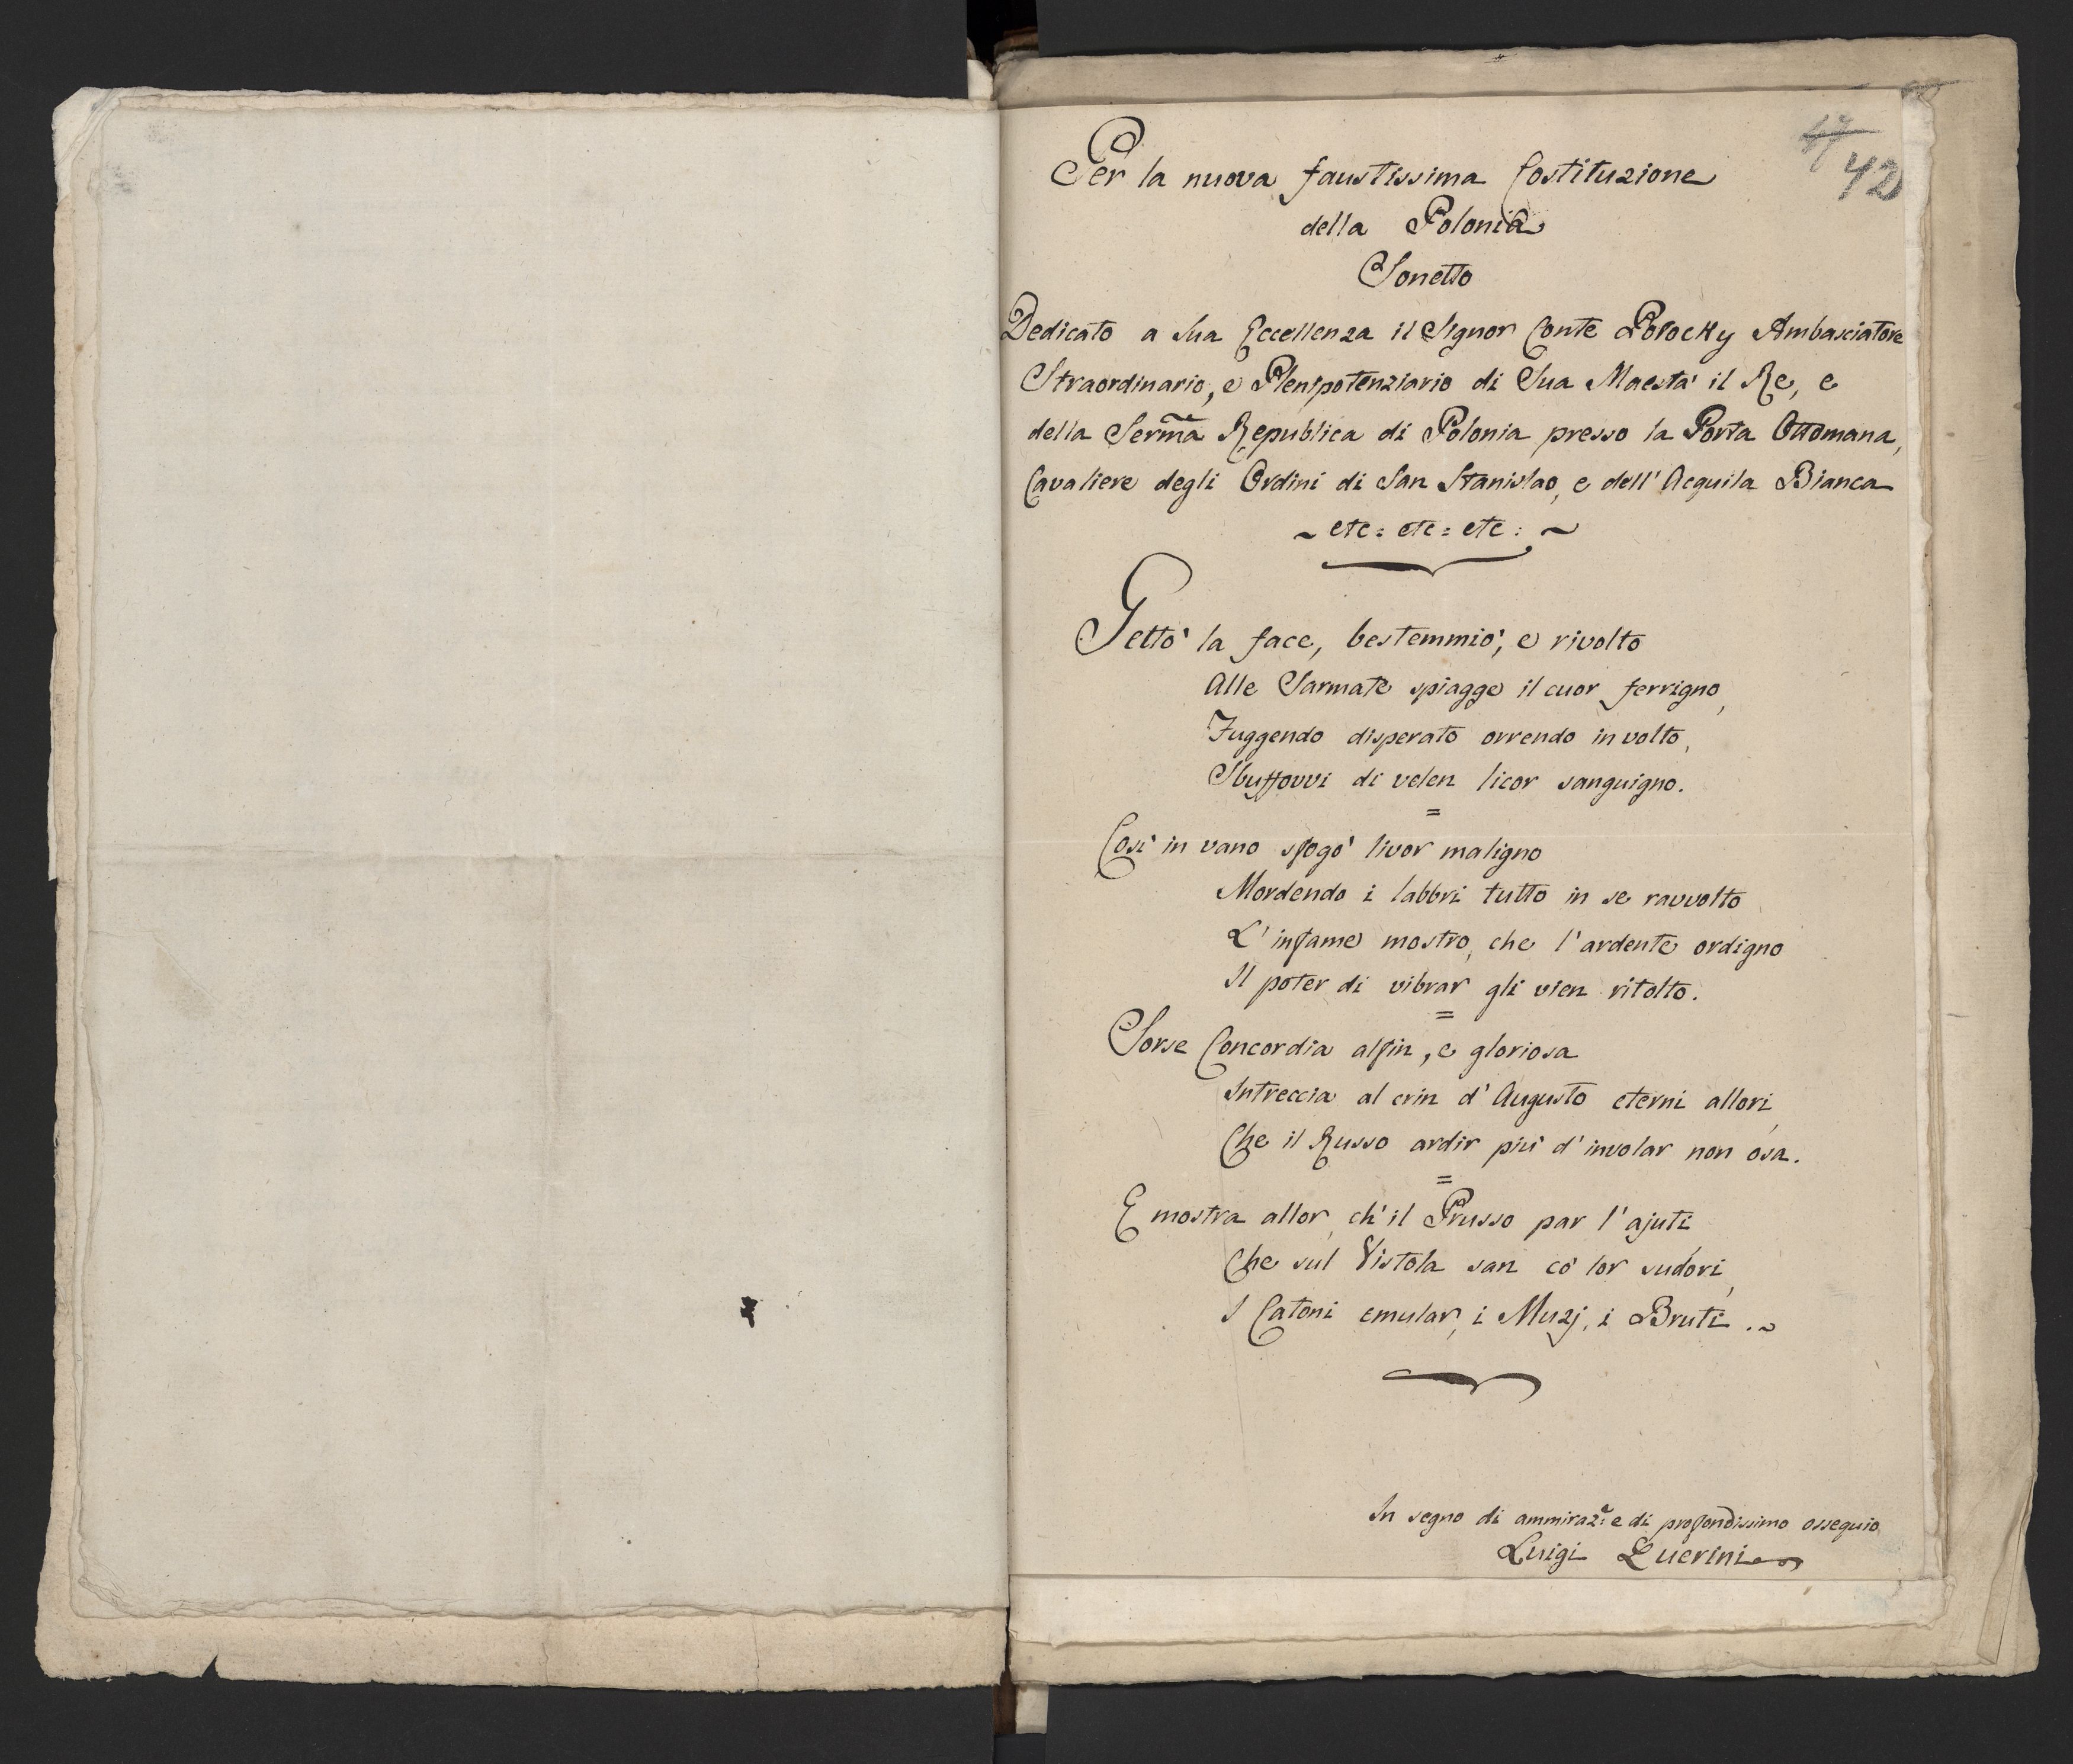 47
42
Per la nuova faustissima Costituzione
della Polonia
Sonetto
Dedicato a Sua Eccellenza il Signor Conte Potocky Ambasciatore
Straordinario, e Plenipotenziario di Sua Maesta' il Re, e
della Serma Republica di Polonia presso la Porta Ottomana,
Cavaliere degli Ordini di San Stanislao, e dell' Acquila Bianca
~ etc = etc = etc : ~
Getto' la face, bestemmio', e rivolto
Alle Sarmate spiagge il cuor ferrigno,
Fuggendo disperato orrendo in volto,
Sbuffovvi di velen licor sanguigno.
=
Cosi' in vano sfogo' livor maligno
Mordendo i labbri tutto in se ravvolto
L' infame mostro, che l' ardente ordigno
Il poter di vibrar gli vien ritolto.
=
Sorse Concordia alfin, e gloriosa
Intreccia al crin d' Augusto eterni allori,
Che il Russo ardir piu' d' involar non osa.
=
E mostra allor, ch' il Prusso par l' ajuti
Che sul Vistola san co' lor sudori,
I Catoni emular, i Muzj, i Bruti . ~
In segno di ammiraz:e e di profondissimo ossequio
Luigi Querini